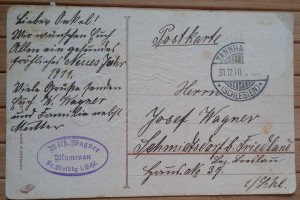 Lieber Onkel!
Wir wünschen Euch
Allen ein gesundes
fröhliches Neues Jahr
1911.
Viele Grüße senden
Euch W. Wagner
und Familie nebst
Mutter
Wilh. Wagner
Postkarte
TANNHA
31.12.10
(SCHLESIEN)
Herrn
Josef Wagner
Schmidtsdorf b. Friedland
Bez. Breslau
Haus No. 39
i/Schl.